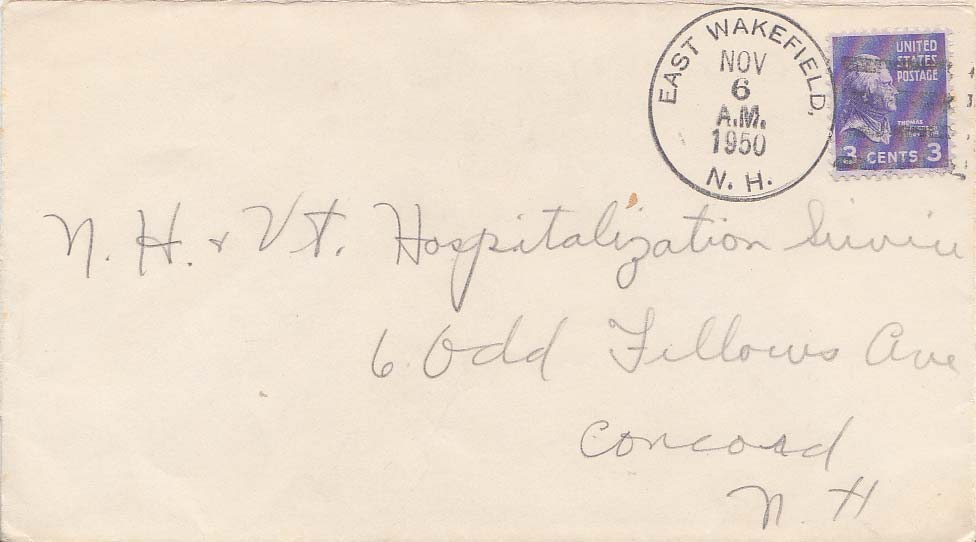 EAST WAKEFIELD,
NOV
6
A.M.
1950
N. H.
UNITED
STATES
POSTAGE
THOMAS
3 CENTS 3
N. H. & Vt. Hospitalization Service
6 Odd Fellows Ave
Concord
N H